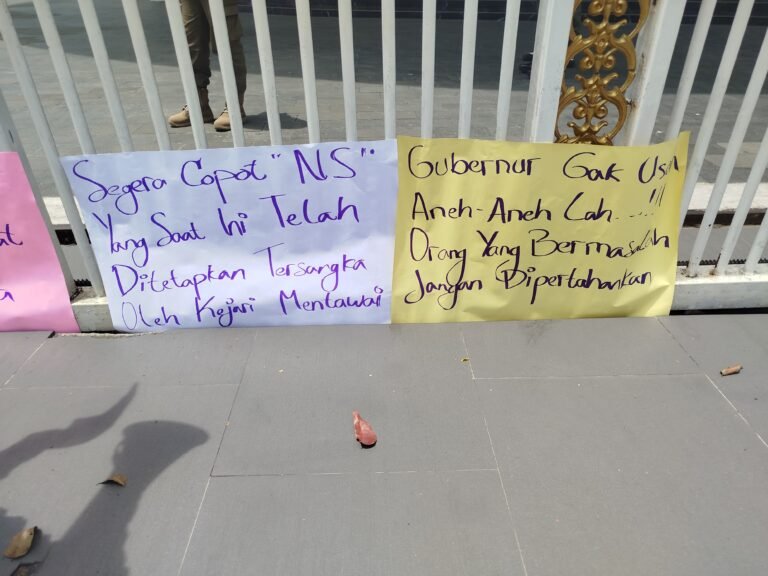 at
a
Segera Copot "NS"
Yang Saat Ini Telah
Ditetapkan Tersangka
Oleh Kejari Mentawai
Gubernur Gak Usah
Aneh-Aneh Lah....!!!
Orang Yang Bermasalah
Jangan Dipertahankan